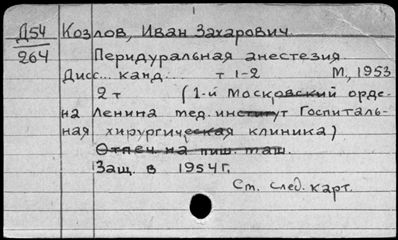 Д54
264
Козлов, Иван Захарович.
Перидуральная анестезия
Дисс... канд... т 1-2 М., 1953
2 т (1-й Московский орде-
на Ленина мед. институт Госпиталь-
ная хирургическая клиника)
Отпеч. на пиш. маш.
Защ. в 1954 г.
См. след. карт.